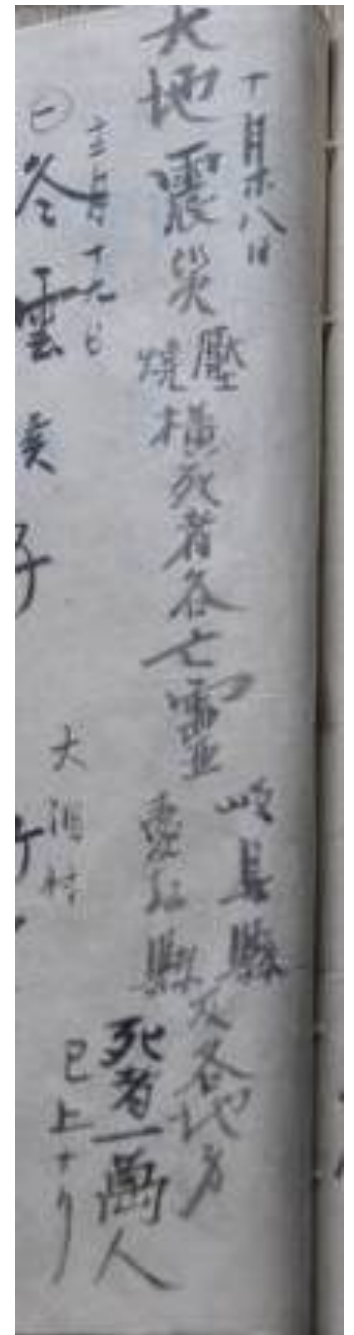 十月廿八日
大地震災
壓
燒
横死者各亡靈
岐阜縣
愛知縣
及各地方
死者一萬人
已上ナリ
十二月十九日
㊀冬雲
子
大泊村